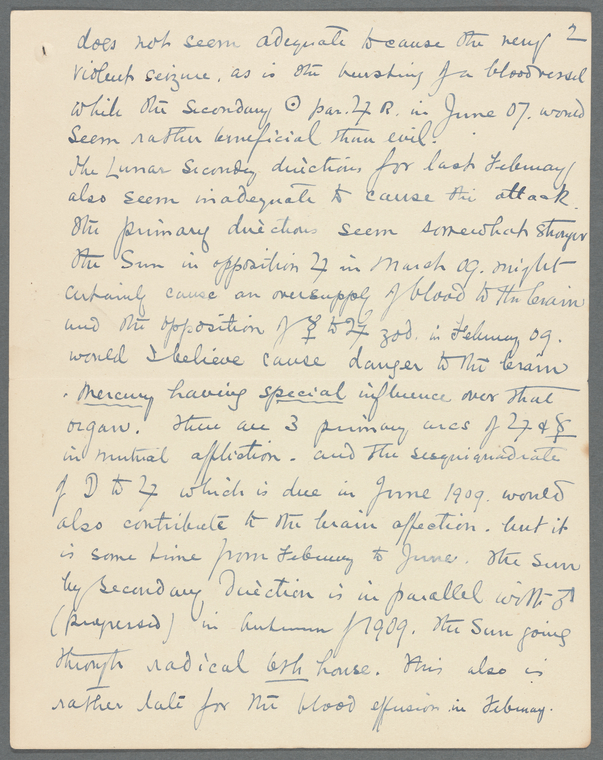 2
does not seem adequate to cause the very
violent seizure, as is the bursting of a bloodvessel
while the Secondary ☉ par. ♃ R. in June 07. would
seem rather beneficial than evil.
The Lunar Secondy directions for last February
also seem inadequate to cause the attack.
The primary directions seem somewhat stronger
the Sun in opposition ♃ in March 09. might
certainly cause an oversupply of blood to the brain
and the opposition of ☿ to ♃ zod. in February 09.
would I believe cause danger to the brain
. Mercury having special influence over that
organ. There are 3 primary arcs of ♃ & ☿
in mutual affliction. and the sesquiquadrate
of ☽ to ♃ which is due in June 1909. would
also contribute to the brain affection. but it
is some time from February to June. The Sun
by Secondary Direction is in parallel with ♂
(progressed) in Autumn of 1909. The Sun going
through radical 6th house. This also is
rather late for the blood effusion in February.